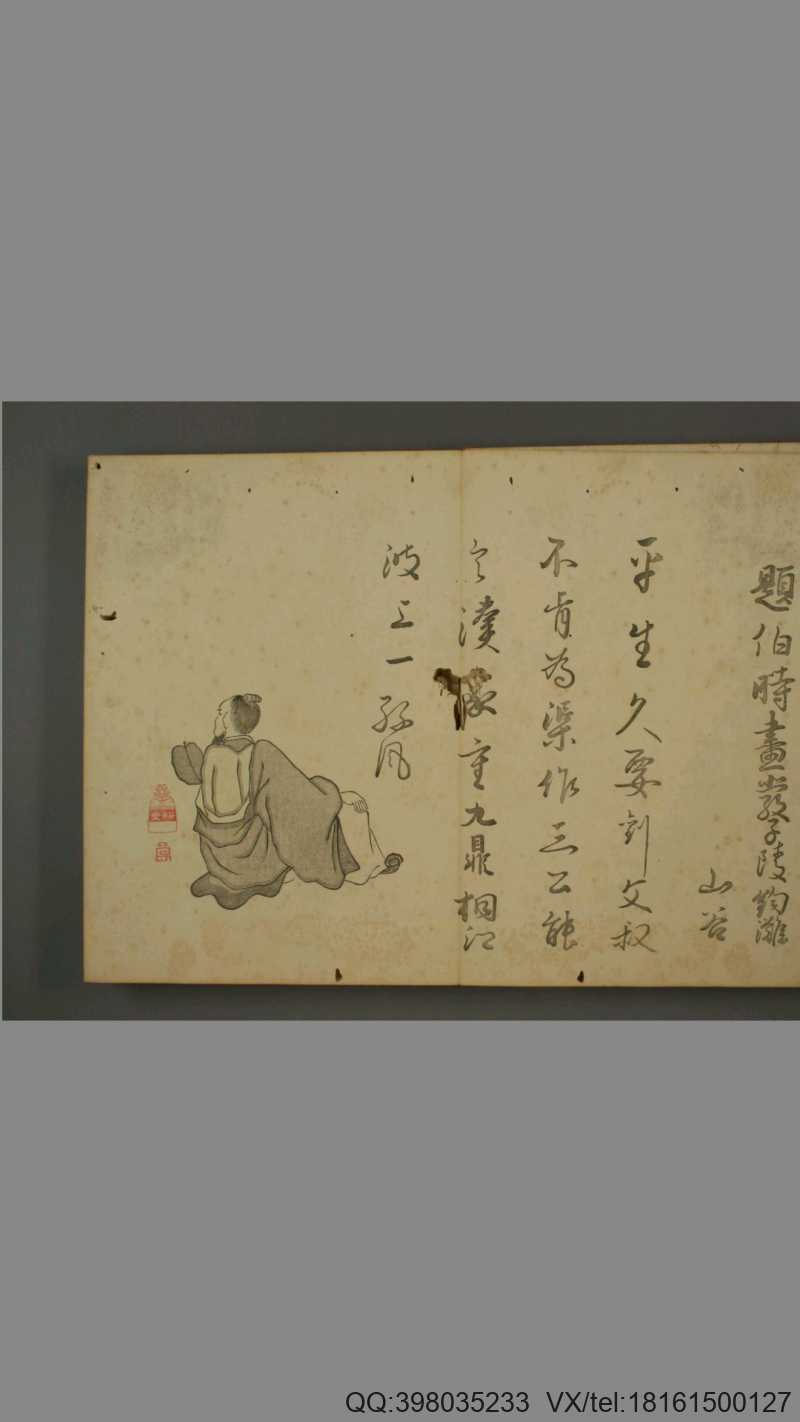 題伯時畫嚴子陵釣灘
山谷
平生久要劉文叔
不肯為渠作三公能
令漢家重九鼎桐江
波上一絲風
QQ:398035233 VX/tel:18161500127